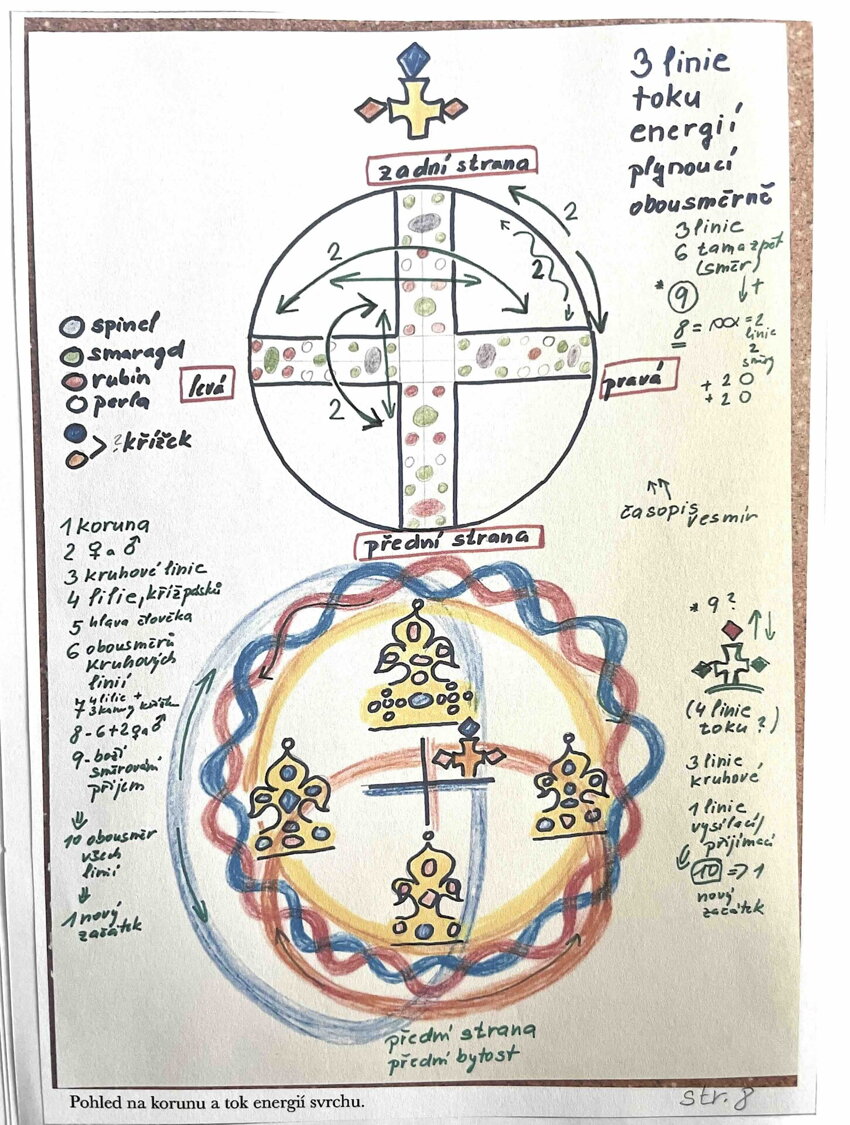 3 linie
toku
energií
plynoucí
obousměrně
3 linie
6 tam a zpět
(směr)
* 9 ↓+
8 = =2
linie
2
směry
+ 2 O
+ 2 O
zadní strana
2
2
2
2
levá
pravá
přední strana
spinel
smaragd
rubín
perla
> ? křížek
časopis
Vesmír
1 koruna
2 ♀ a ♂
3 kruhové linie
4 lilie, kříž pásků
5 hlava člověka
6 obousměrů
kruhových
linií
7 4 lilie +
3 kameny křížku
8 - 6+2 ♀ a ♂
9 - boží
směrování
příjem
⇓
10 obousměr
všech
linií
⇓
1 nový
začátek
* 9 ?
↑↓
(4 linie
toku ?)
3 linie,
kruhové
1 linie
vysílací/
přijímací
10 => 1
nový
začátek
přední strana
přední bytost
Pohled na korunu a tok energií svrchu.
str. 8